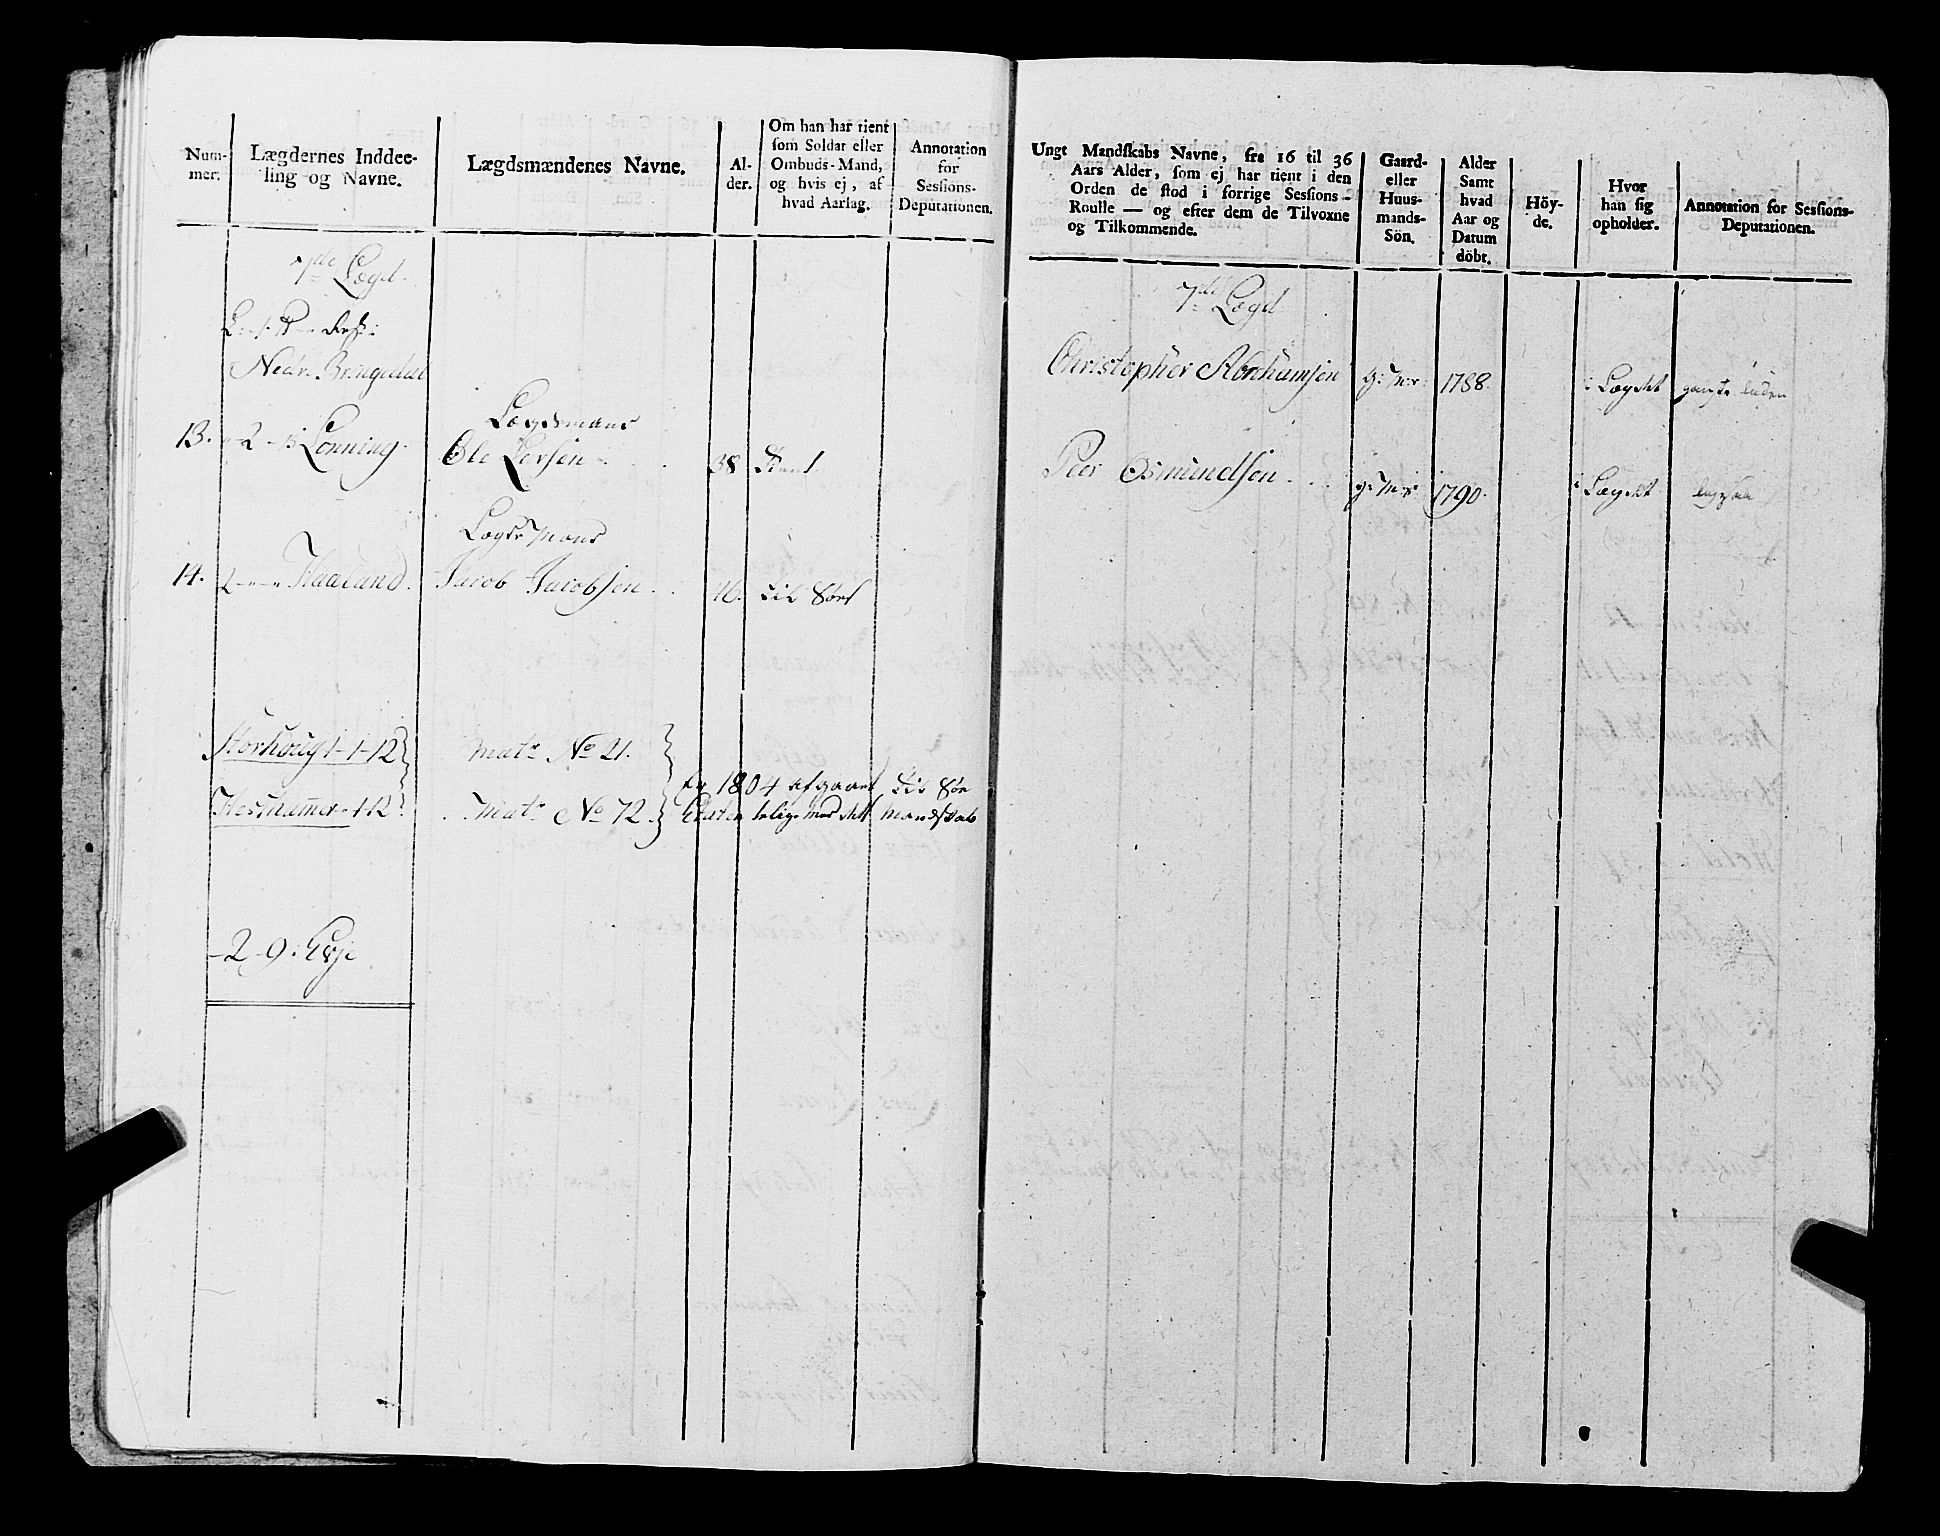 Num-
mer.
Lægdernes Inddee-
ling og Navne.
Lægdsmændenes Navne.
Al-
der.
Om han har tient
som Soldat eller
Ombuds-Mand,
og hvis ej, af
hvad Aarsag.
Annotation
for
Sessions-
Deputationen.
7de Lægd.
Nedre Bringedal
Lægdsmand
13. 2 Lønning. Ole Larsen 38 tient
Lægds Mand
14. 2 Haaland. Jacob Jacobsen 46. til Søes
Storhoug 1-1-12 Matr No 21.
Hesthammer 1-12 Matr No 72.
1804 afgaaet til Søe
Etaten mandskab
2-9
Ungt Mandskabs Navne, fra 16 til 36
Aars Alder, som ej har tient i den
Orden de stod i forrige Sessions-
Roulle — og efter dem de Tilvoxne
og Tilkommende.
Gaard-
eller
Huus-
mands-
Sön.
Alder
Samt
hvad
Aar og
Datum
döbt.
Höy-
de.
Hvor
han sig
opholder.
Annotation for Sessions-
Deputationen.
7de Lægd
Christopher Abrahamsen 1788. i Lægdet
Peer Osmundsen 1790. i Lægdet